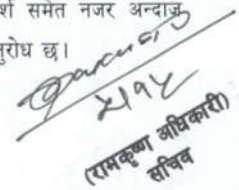 र्श समेत नजर अन्दाज
नुरोध छ।
५।१५
(रामकृष्ण अधिकारी)
सचिव